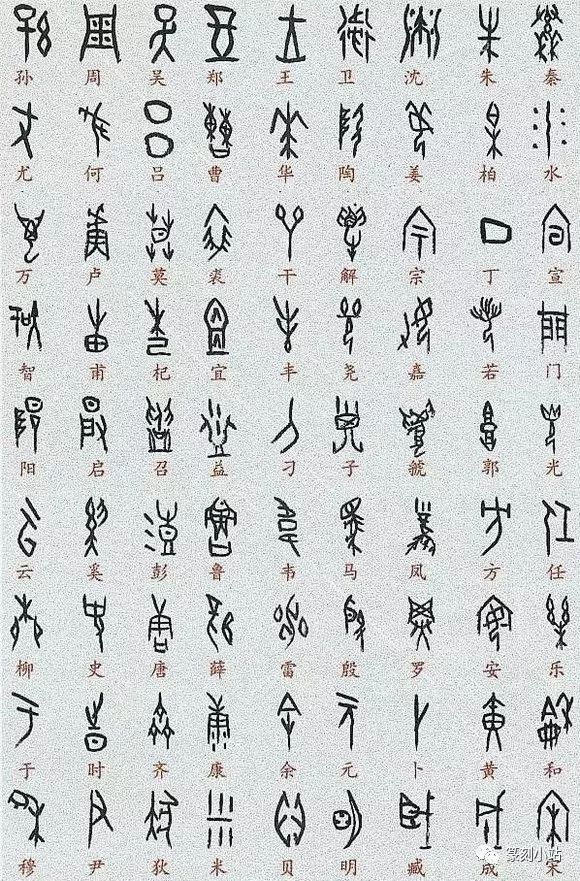 孙 周 吴 郑 王 卫 沈 朱 秦
尤 何 吕 曹 华 陶 姜 柏 水
万 卢 莫 裘 干 解 宗 丁 宣
智 甫 杞 宜 丰 尧 嘉 若 门
阳 启 召 益 刁 子 虢 郭 光
云 奚 彭 鲁 韦 马 凤 方 任
柳 史 唐 薛 雷 殷 罗 安 乐
于 时 齐 康 余 元 卜 黄 和
穆 尹 狄 米 贝 明 臧 成 宋
篆刻小站